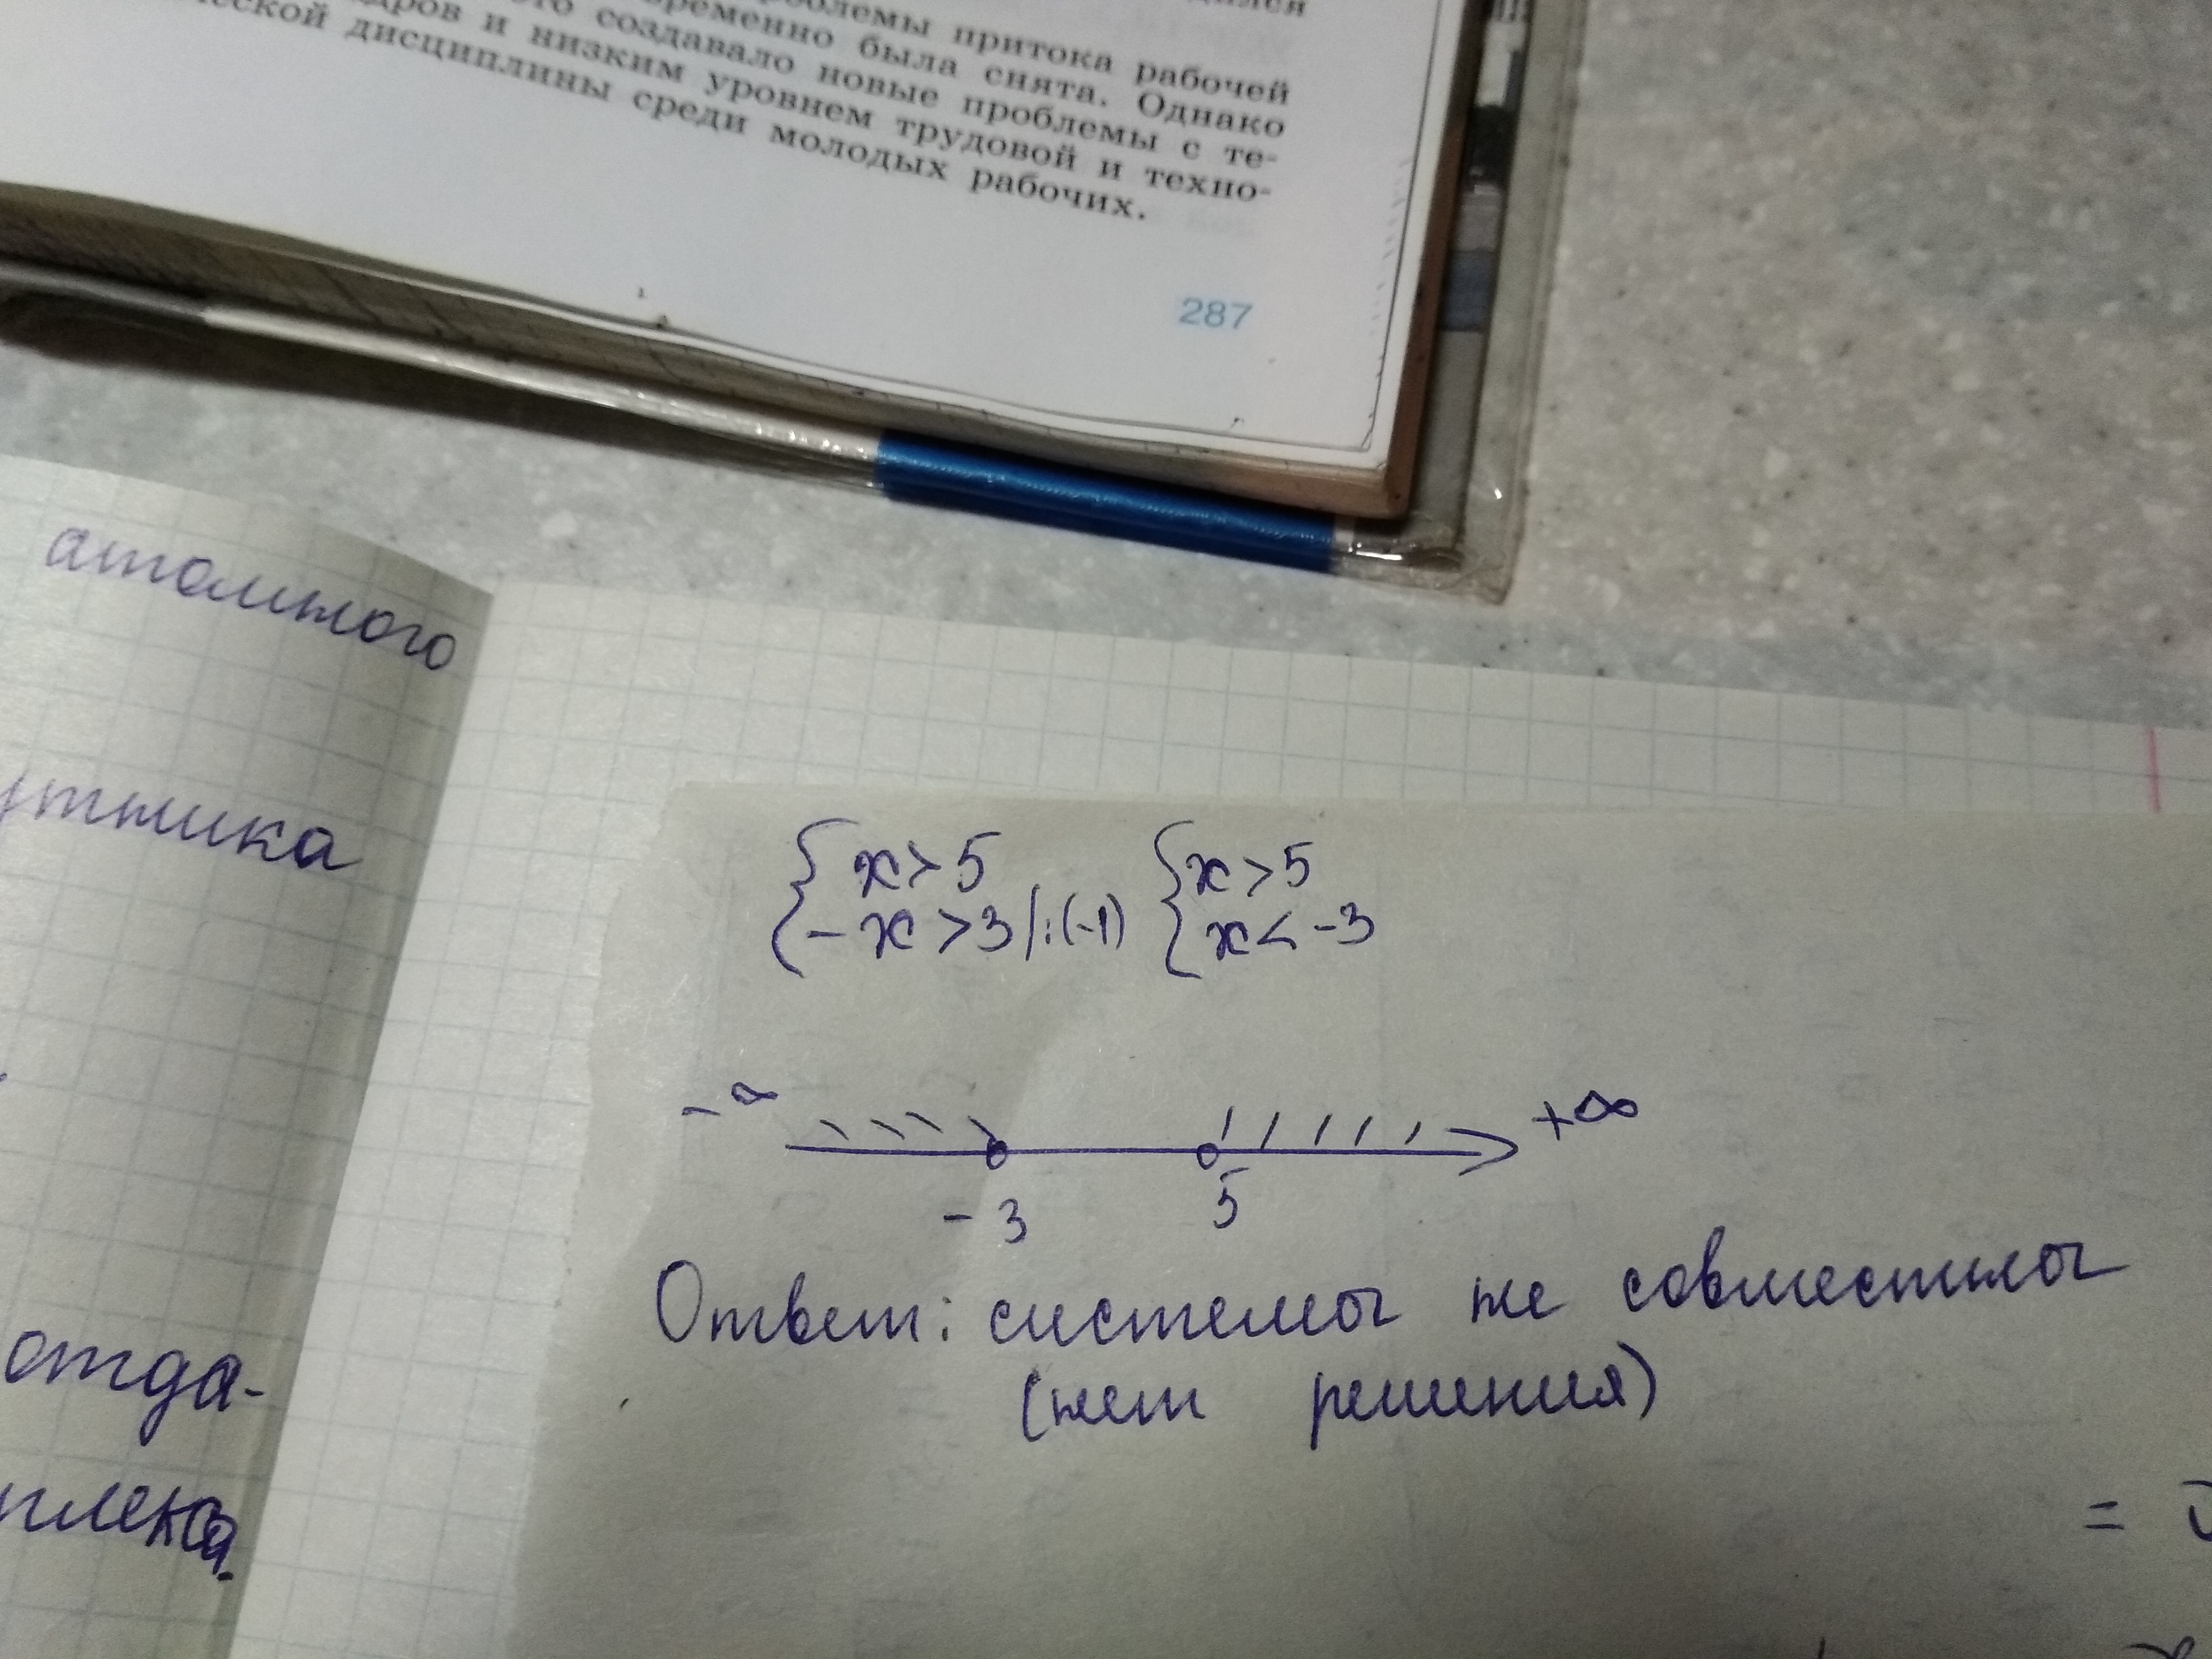 проблемы притока рабочей
временно была снята. Однако
это создавало новые проблемы с те-
и низким уровнем трудовой и техно-
дисциплины среди молодых рабочих.
287
атомного
утника
отда-
плекса.
{ x > 5 { x > 5
{ -x > 3 |:(-1) { x < -3
-∞ +∞
-3 5
Ответ: системы не совместимы
(нет решения)
=